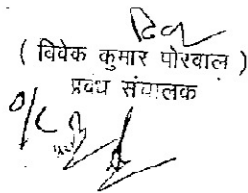 ( विवेक कुमार पोरवाल )
प्रबंध संचालक
O/C